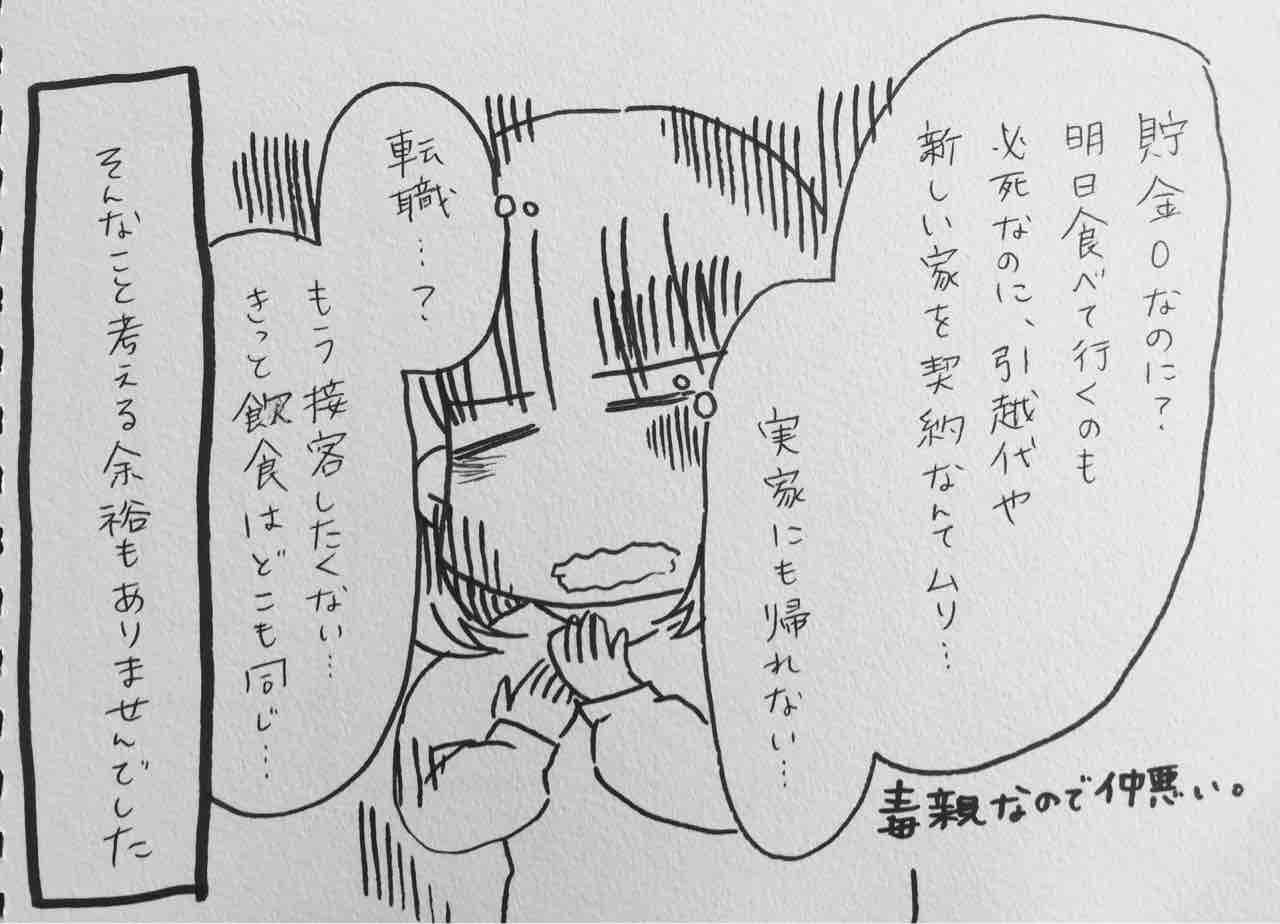 貯金0なのに?
明日食べて行くのも
必死なのに、引越代や
新しい家を契約なんてムリ…
実家にも帰れない…
毒親なので仲悪い。
転職…?
もう接客したくない…
きっと飲食はどこも同じ…
そんなこと考える余裕もありませんでした